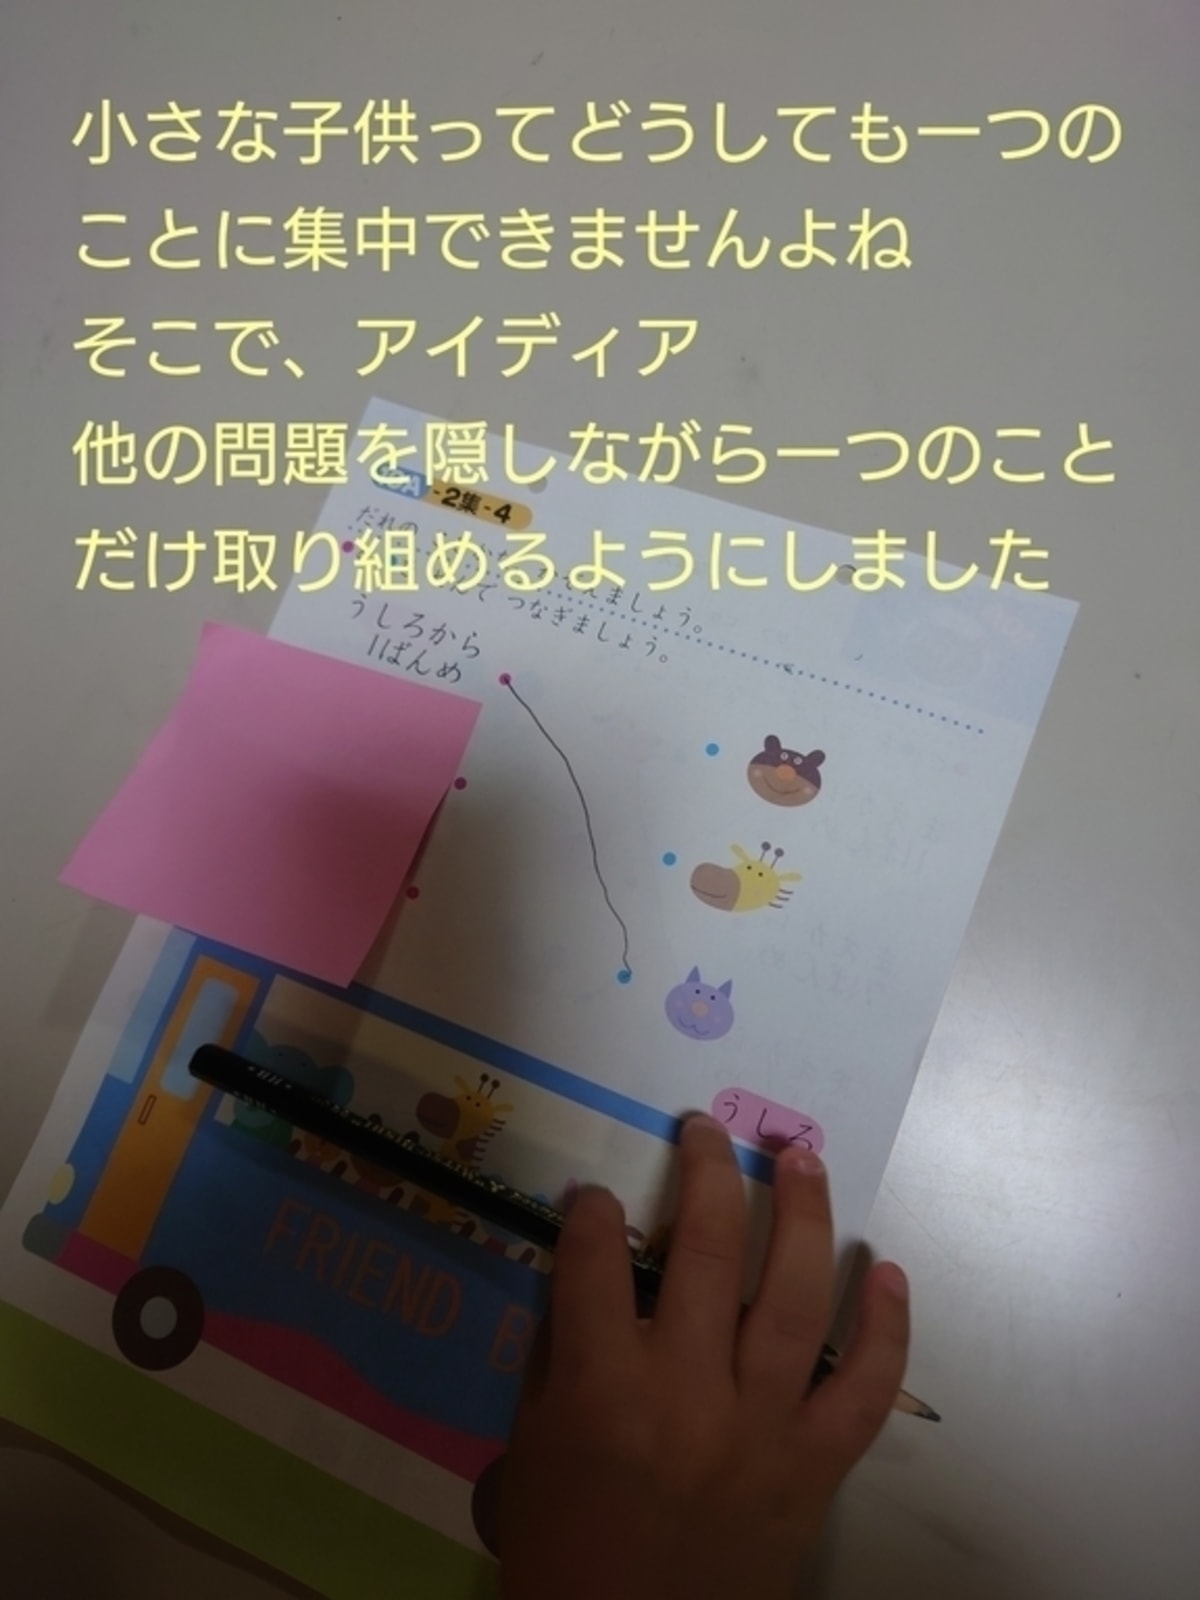 小さな子供ってどうしても一つの
ことに集中できませんよね
そこで、アイディア
他の問題を隠しながら一つのこと
だけ取り組めるようにしました
-2集-4
だれの
ましょう。
つなぎましょう。
うしろから
11ばんめ
うしろ
FRIEND B